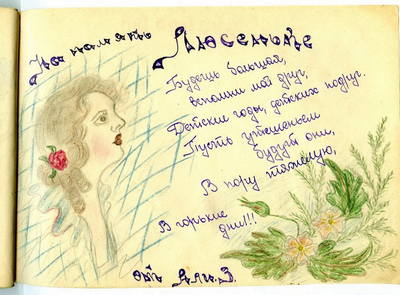 На память Люсеньке
Будешь большая,
вспомни мой друг,
Детские годы, детских подруг.
Пусть утешеньем
будут они,
В пору тяжелую,
В горькие
дни!!!
от Али.З.